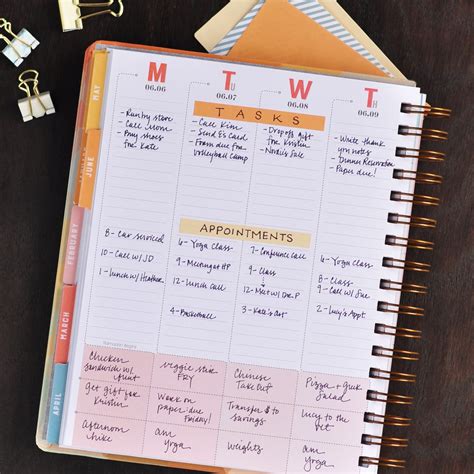 M T W T
06.06 06.07 06.08 06.09
TASKS
- Run by store
- Call Mom
- Pony shoes
for Kate
- Call Kim
- Send E's Card
- Form due for
Volleyball Camp
- Drop off gift
for Kristin
- Nordi's Sale
- White thank
you notes
- Dinner Reservation
- Paper due!
APPOINTMENTS
8 - Car serviced
10 - Call w/ JD
1 - Lunch w/ Heather
6 - Yoga Class
9 - Meeting at HP
12 - Lunch Call
4 - Basketball
7 - Conference Call
9 - Class
12 - Met w/ Dr. P
3 - Kate's Art
6 - Yoga Class
8 - Class
9 - Call w/ Sue
2 - Lucy's Appt.
Chicken
Sandwich w/
fruit
veggie stir
FRY
Chinese
Take out
Pizza +
Salad
Get gift for
Kristin
Work on
paper due
Friday!
Transfer $ to
savings
Lucy to the
vet
afternoon
hike
am
Yoga
weights
am
Yoga
MAY
JUNE
FEBRUARY
MARCH
APRIL